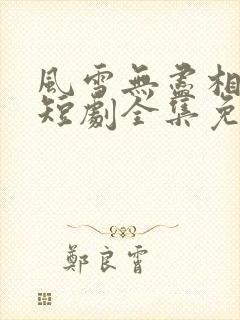 風雪無盡相
短劇全集免
鄭良霄